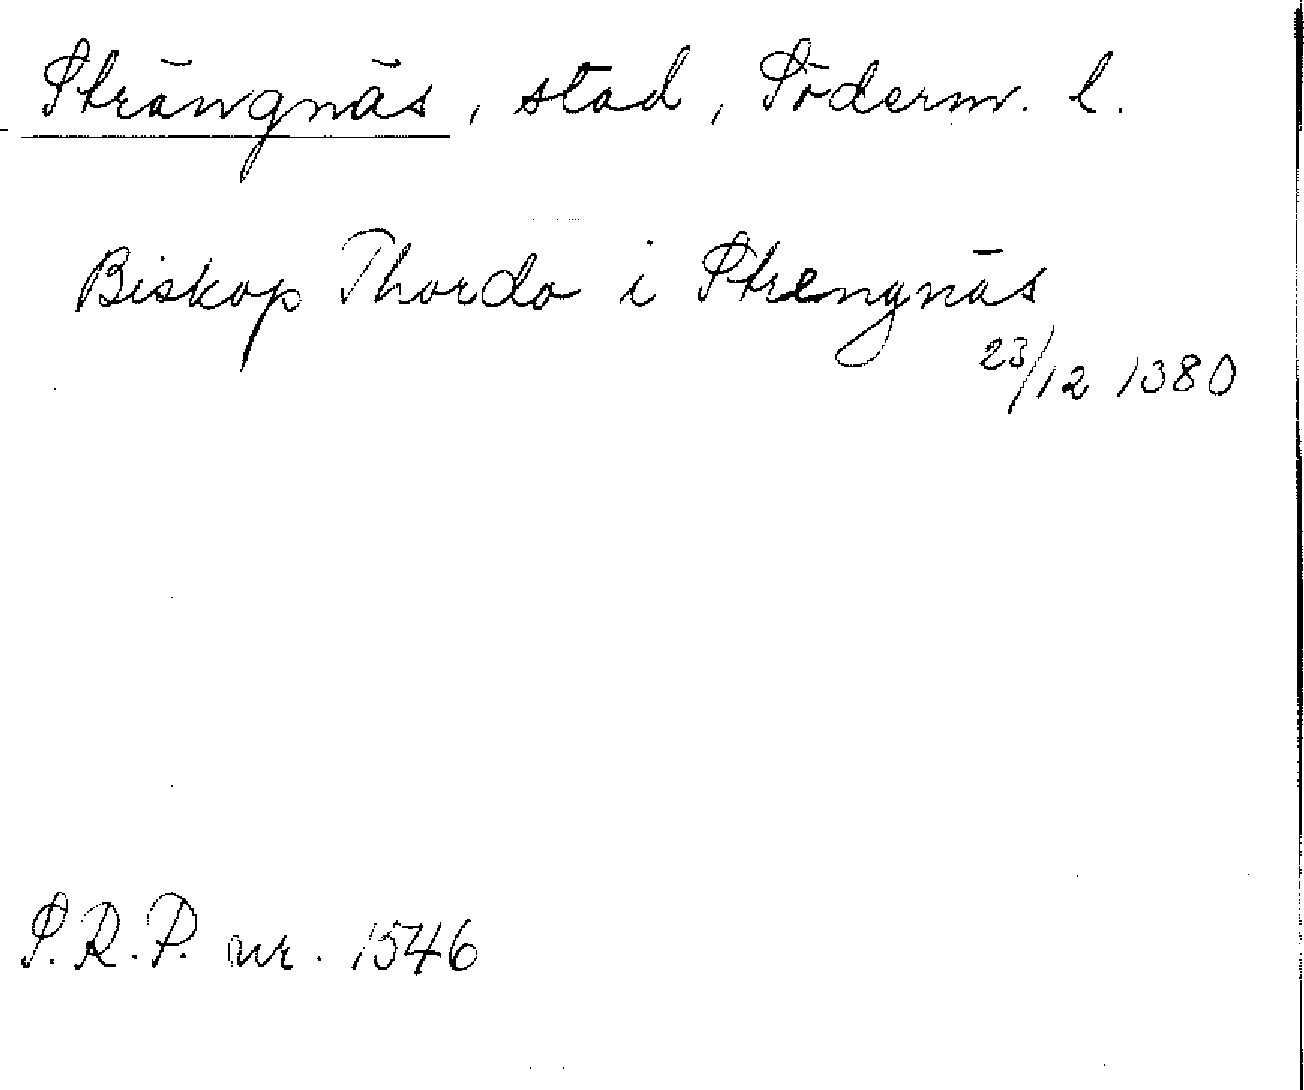 Strängnäs, stad, Söderm. l.
Biskop Thordo i Strengnäs
23/12 1380
S.R.P. nr. 1546